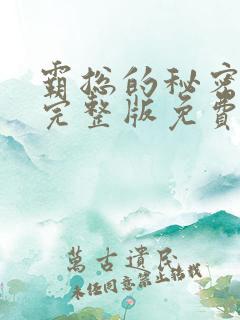 霸总的秘密
完整版免费
萬古遺民
未经同意禁止转载